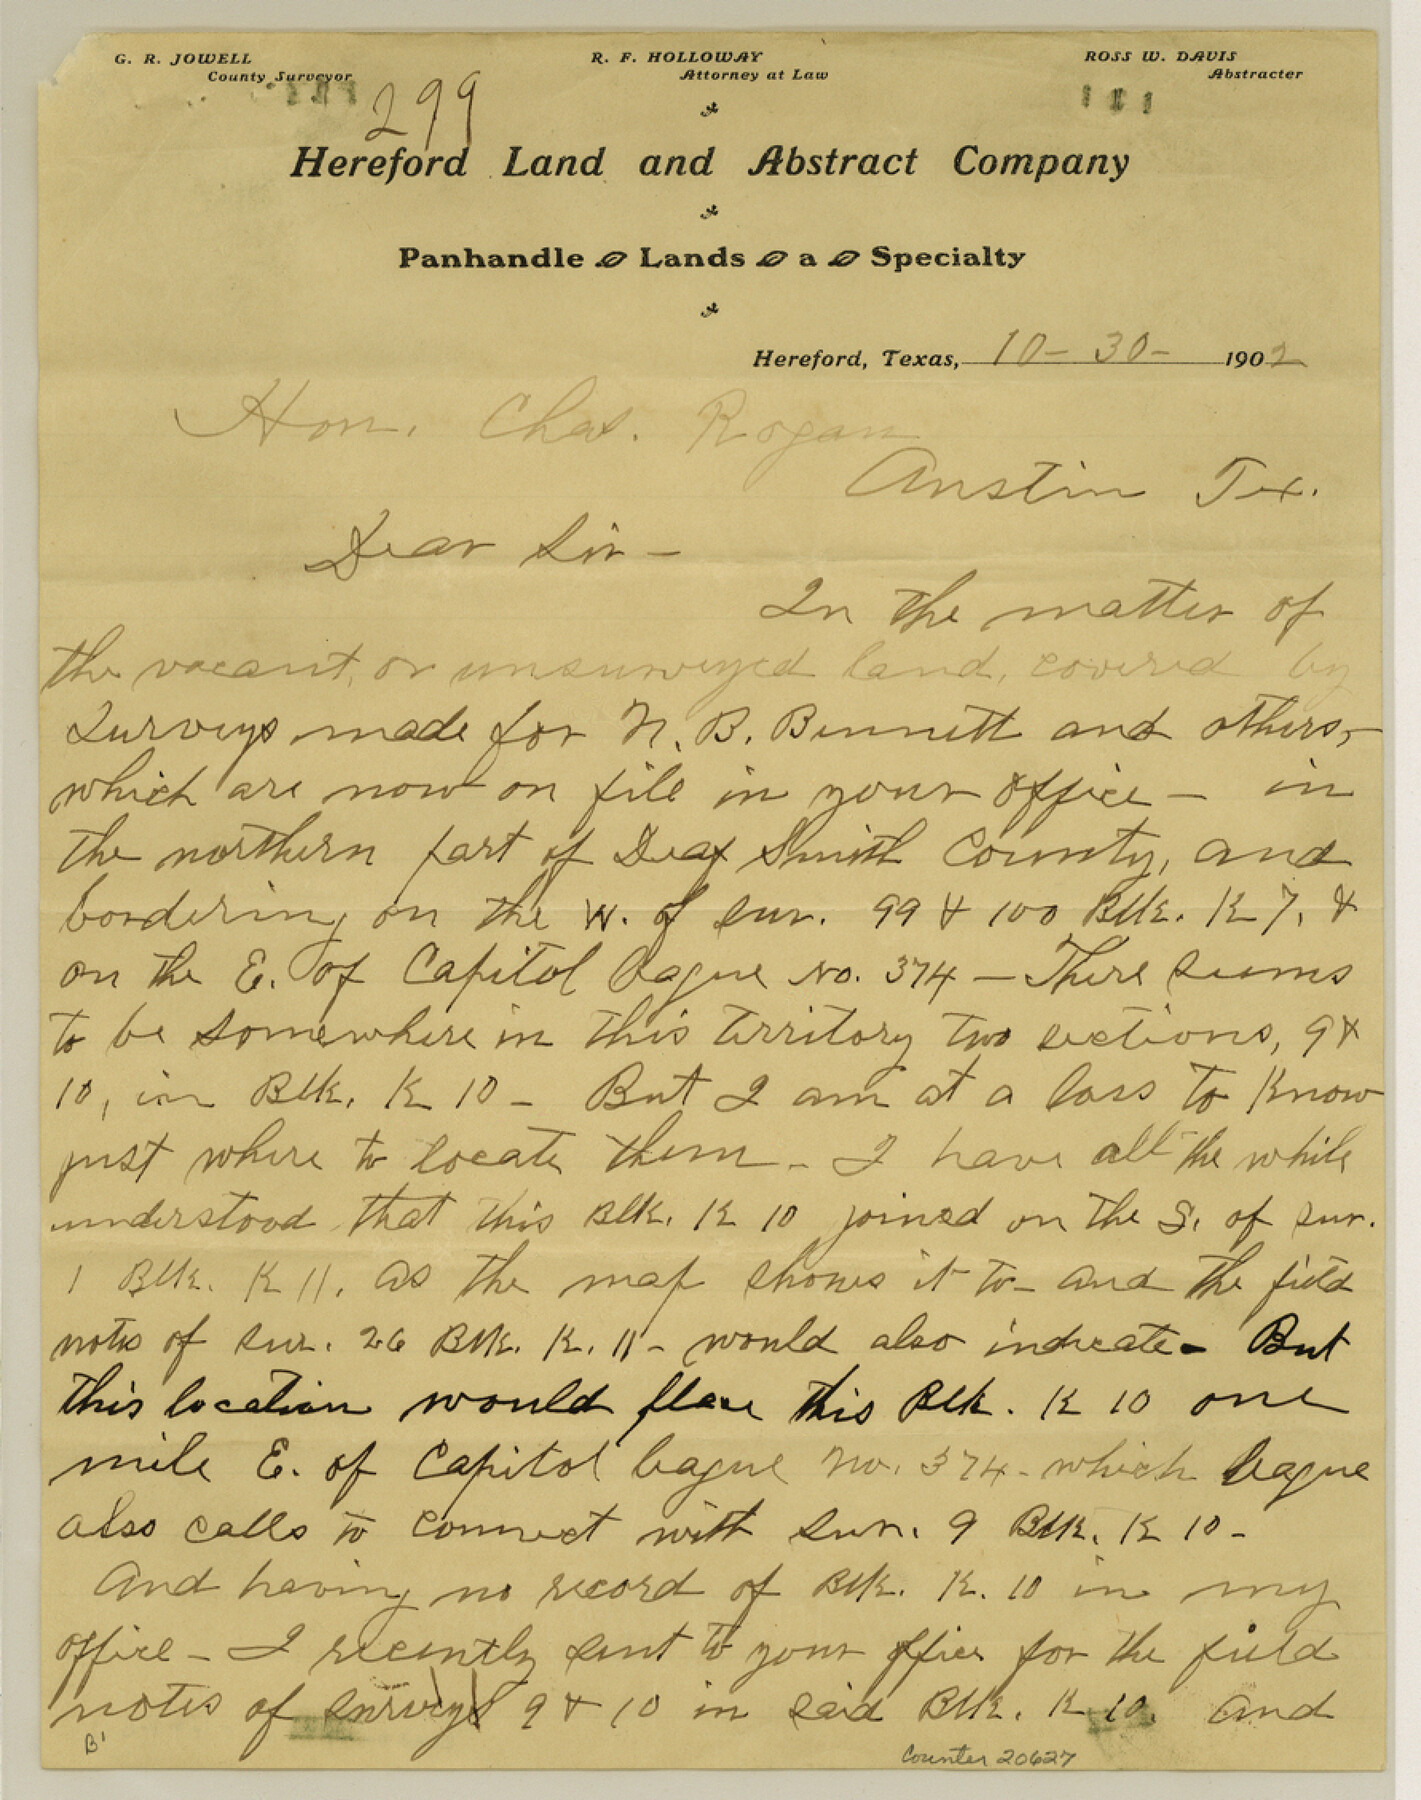 G. R. JOWELL
County Surveyor
R. F. HOLLOWAY
Attorney at Law
ROSS W. DAVIS
Abstracter
299
Hereford Land and Abstract Company
Panhandle Lands a Specialty
Hereford, Texas, 10-30- 1902
Hon. Chas. Rogan
Austin Tex.
Dear Sir-
In the matter of
the vacant, or unsurveyed land, covered by
surveys made for N. B. Bennett and others,-
which are now on file in your office - in
the northern part of Deaf Smith County, and
bordering on the W. of sur. 99 & 100 Blk. K 7, &
on the E. of Capitol league No. 374 - There seems
to be somewhere in this territory two sections, 9 &
10, in Blk. K 10 - But I am at a loss to know
just where to locate them - I have all the while
understood that this Blk. K 10 joined on the S. of sur.
1 Blk. K 11. as the map shows it to - and the field
notes of sur. 26 Blk. K. 11 - would also indicate - But
this location would place this Blk. K 10 one
mile E. of Capitol league No. 374 - which league
also calls to connect with sur. 9 Blk. K 10 -
And having no record of Blk. K. 10 in my
office - I recently sent to your office for the field
notes of surveys 9 & 10 in said Blk. K 10. and
B'
Counter 20627